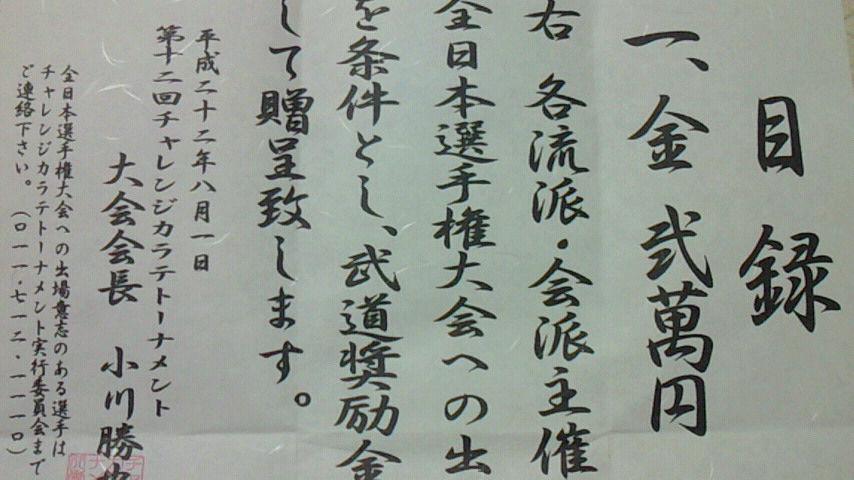 目録
一、金 弐萬円
右 各流派・会派主催
全日本選手権大会への出
を条件とし、武道奨励金
して贈呈致します。
平成二十二年八月一日
第十二回チャレンジカラテトーナメント
大会会長 小川勝
全日本選手権大会への出場意志のある選手は
チャレンジカラテトーナメント実行委員会まで
ご連絡下さい。(〇一一・七一二・一一一〇)